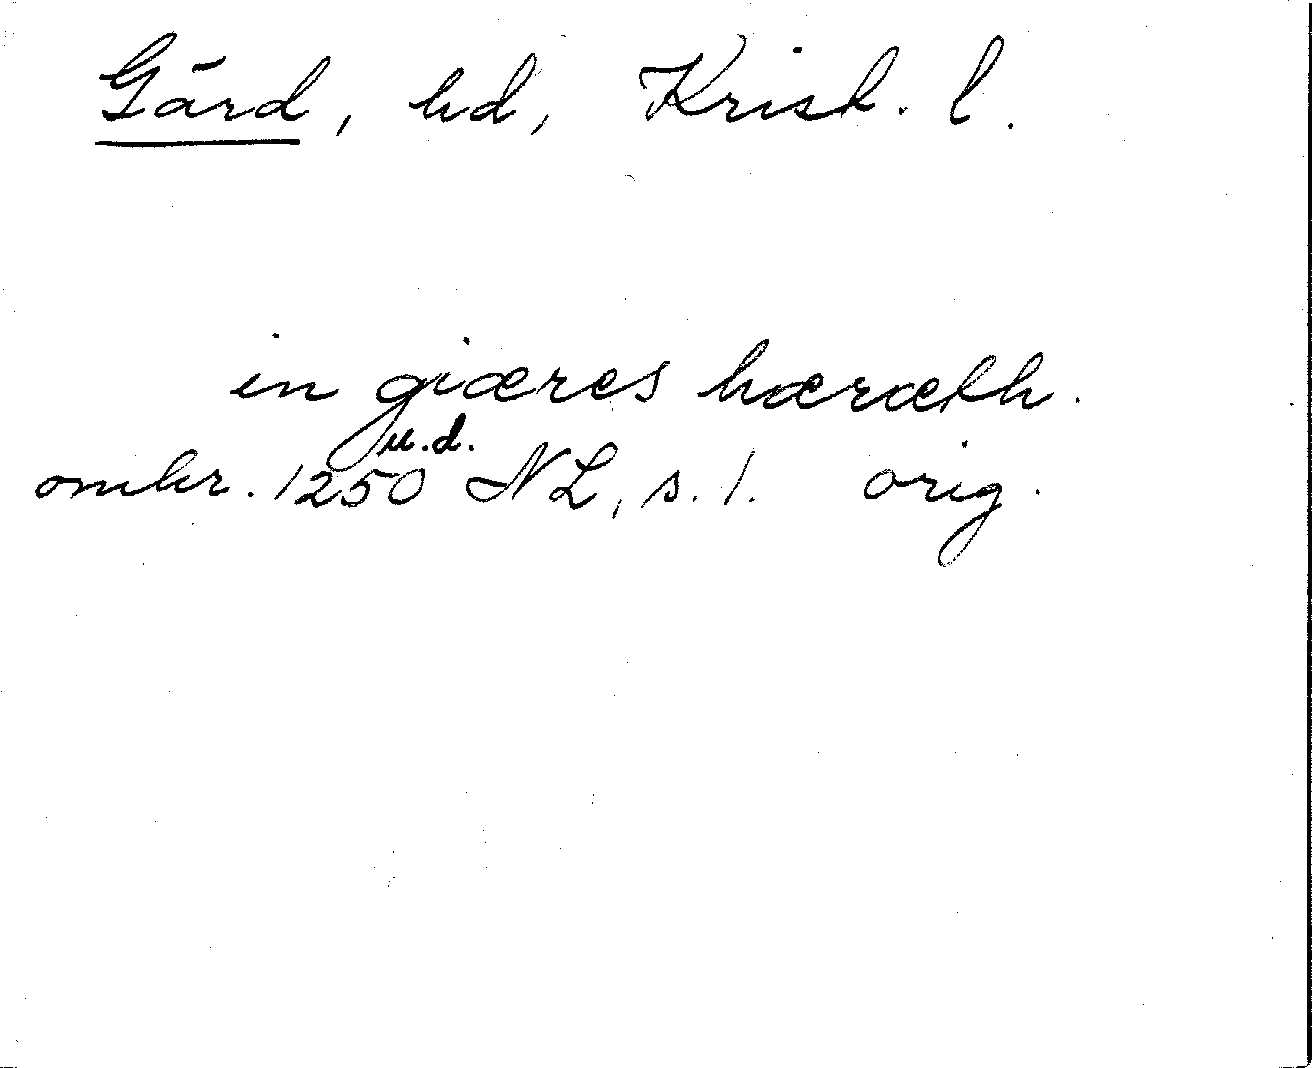 Gärd, hd, Krist. l.
in giæres hæræth.
u.d.
omkr. 1250 NL, s. 1. orig.